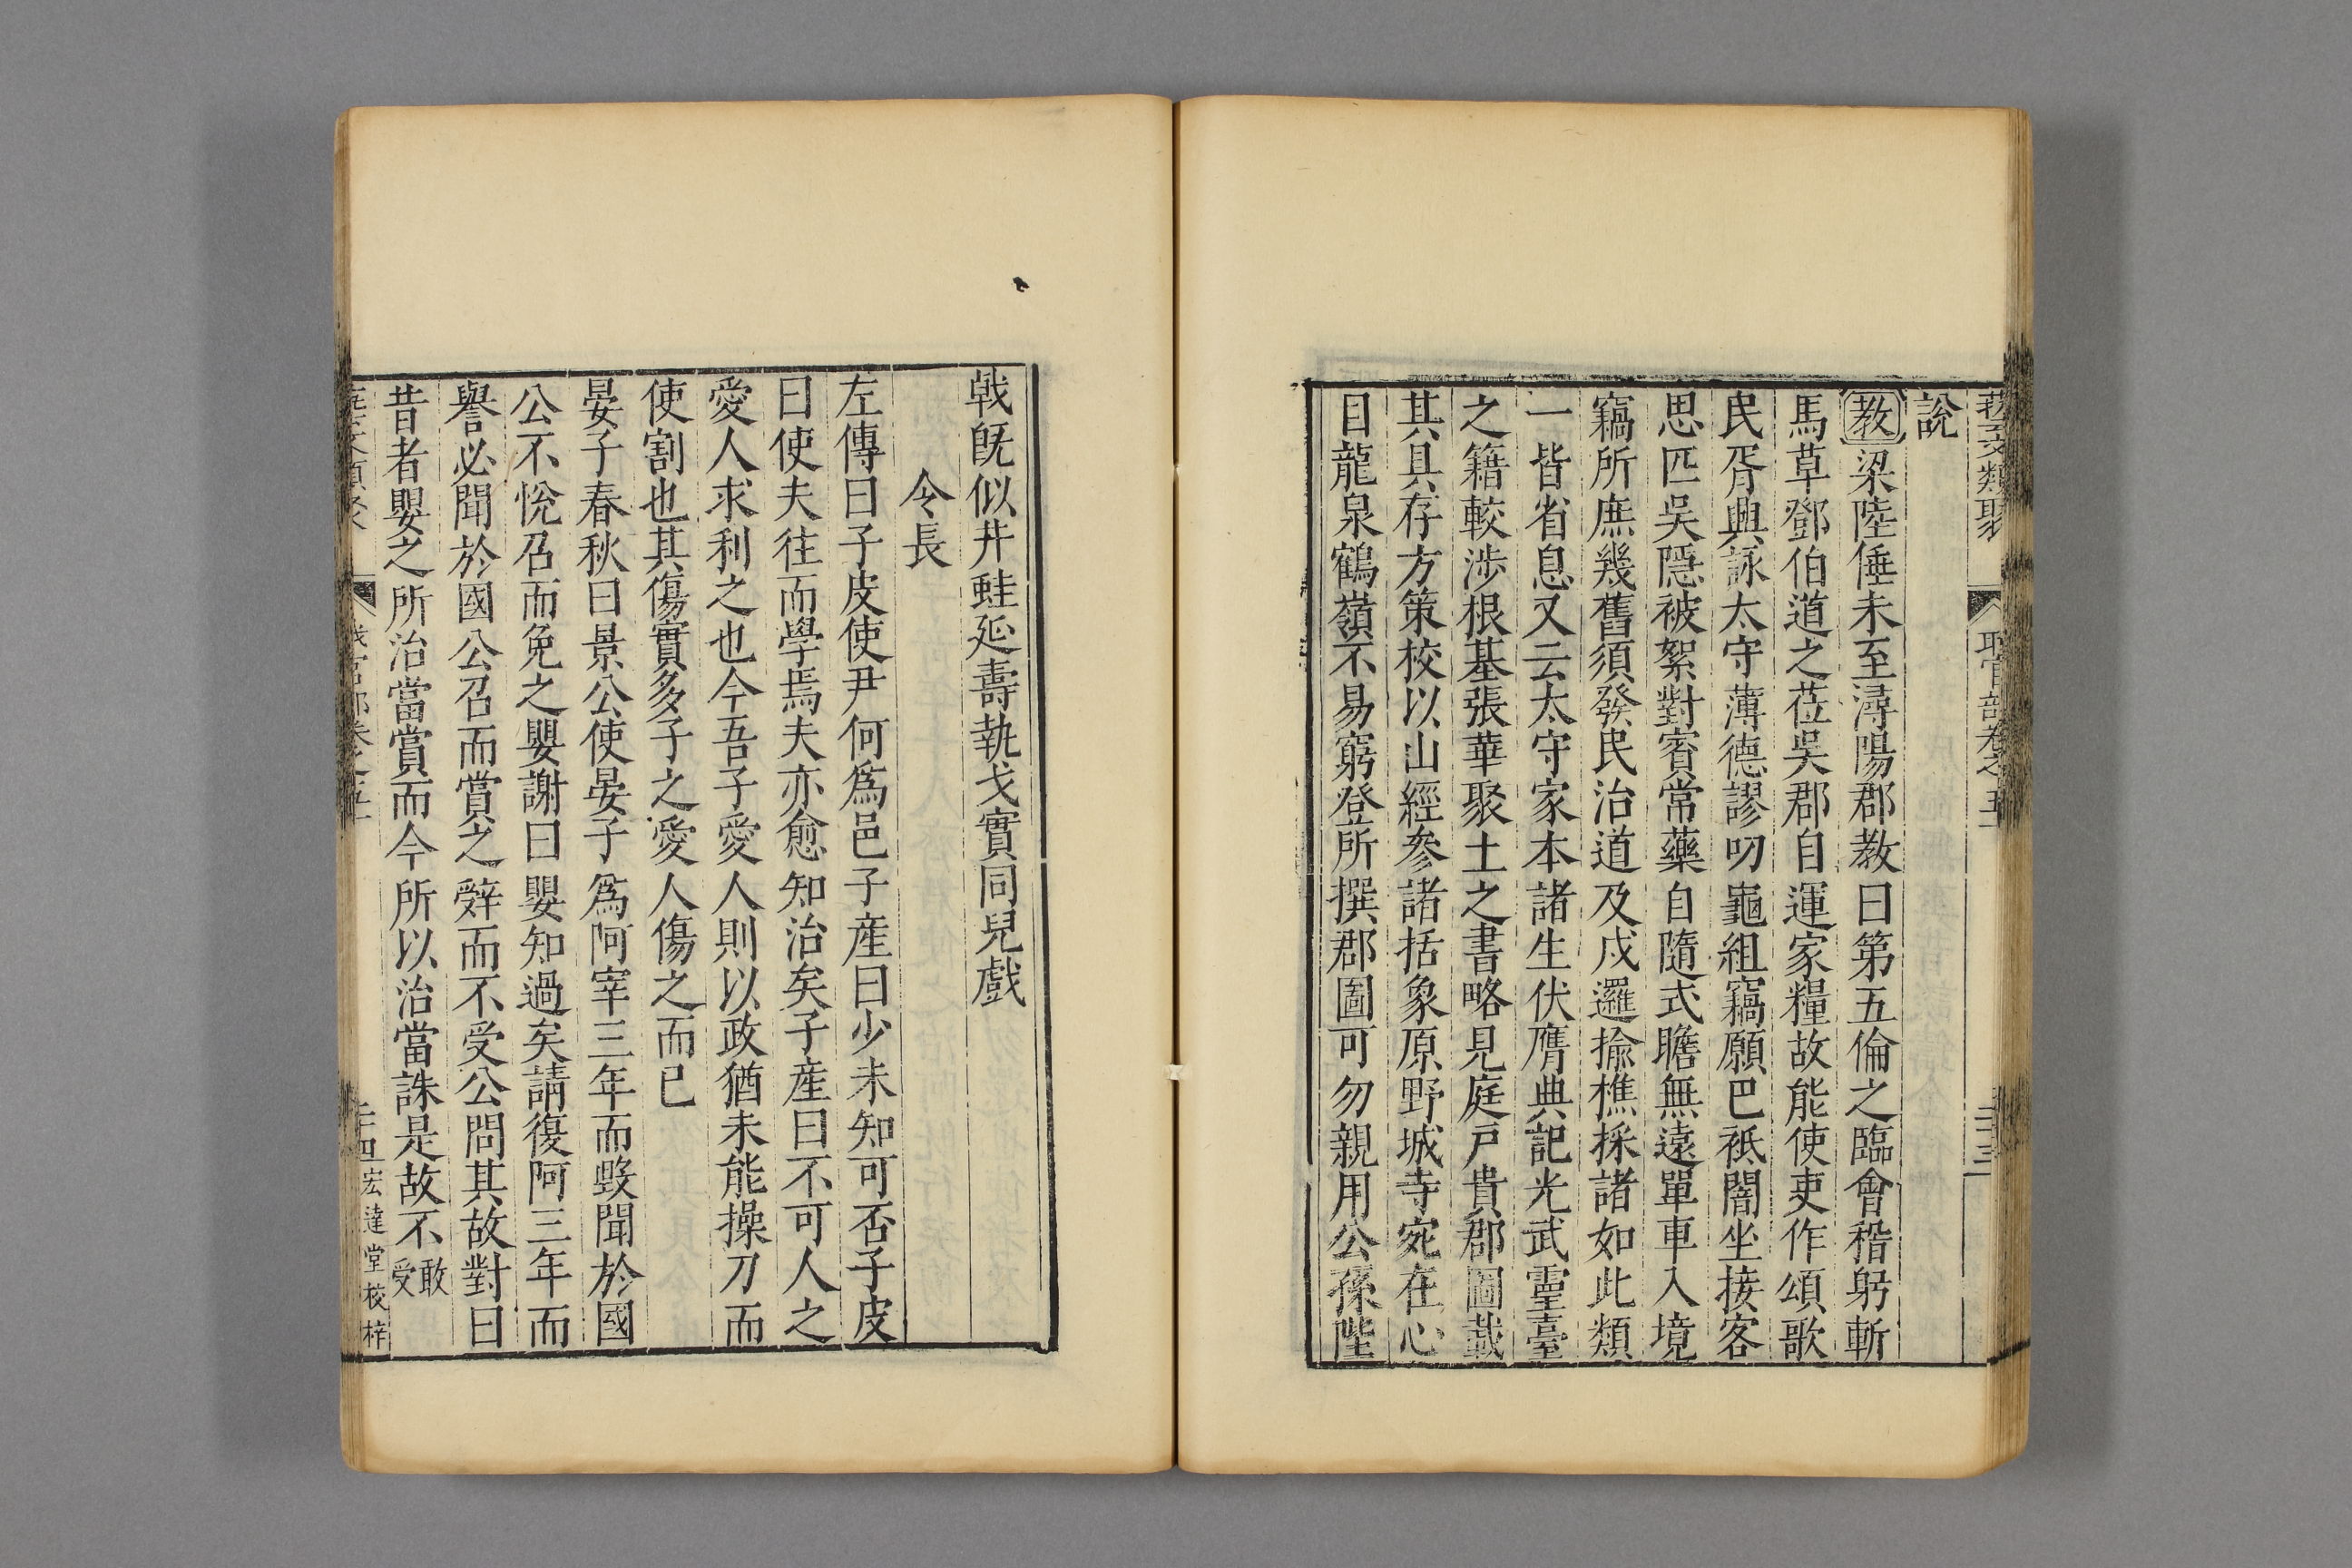 藝文類聚 職官部卷之五十 三十三
說
教梁陸倕未至潯陽郡教曰第五倫之臨會稽躬斬
馬草鄧伯道之莅吳郡自運家糧故能使吏作頌歌
民胥興詠太守薄德謬叨龜組竊願巴祇闇坐接客
思匹吳隱被絮對賓常藥自隨式瞻無遠單車入境
竊所庶幾舊須發民治道及戍邏揄樵採諸如此類
一皆省息又云太守家本諸生伏膺典記光武靈臺
之籍較涉根基張華聚土之書略見庭戸貴郡圖載
其具存方策校以山經參諸括象原野城寺宛在心
目龍泉鶴嶺不易窮登所撰郡圖可勿親用公孫陛
戟旣似井蛙延壽執戈實同兒戲
令長
左傳曰子皮使尹何爲邑子產曰少未知可否子皮
曰使夫往而學焉夫亦愈知治矣子產曰不可人之
愛人求利之也今吾子愛人則以政猶未能操刀而
使割也其傷實多子之愛人傷之而已
晏子春秋曰景公使晏子爲阿宰三年而毀聞於國
公不悅召而免之嬰謝曰嬰知過矣請復阿三年而
譽必聞於國公召而賞之辭而不受公問其故對曰
昔者嬰之所治當賞而今所以治當誅是故不敢受
藝文類聚 職官部卷之五十 三十四 宏達堂校梓